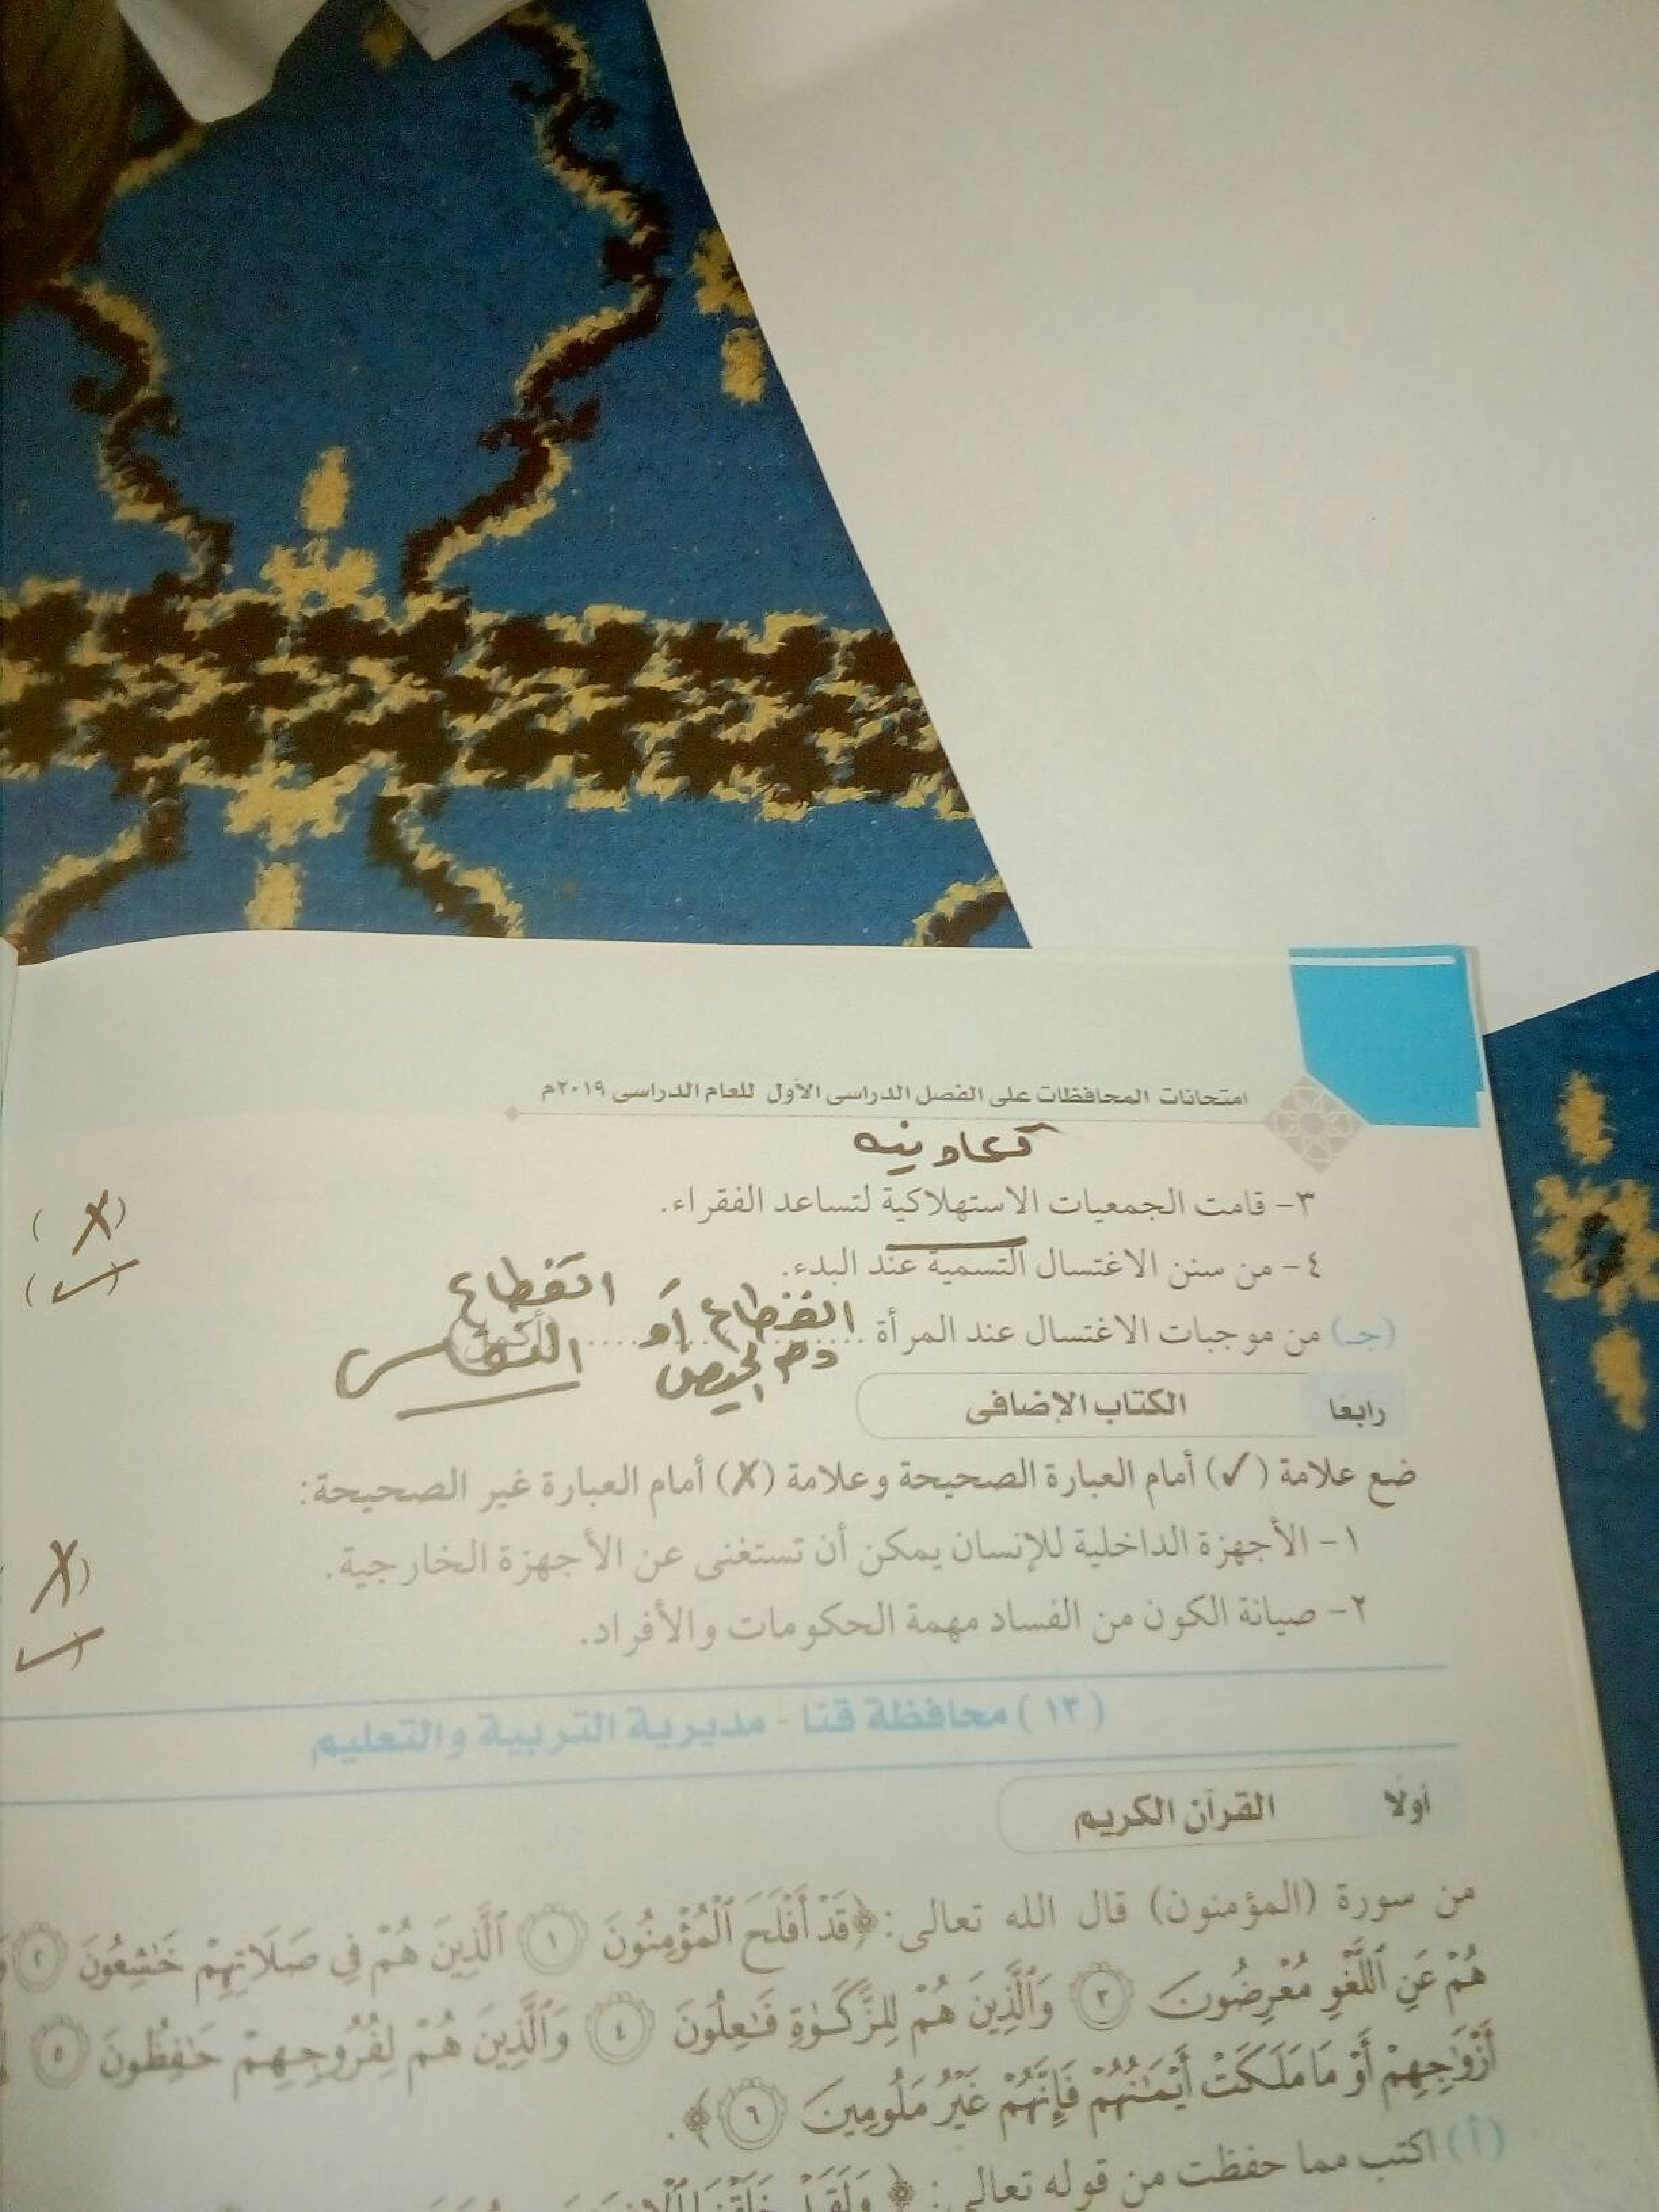 امتحانات المحافظات على الفصل الدراسى الأول للعام الدراسى ٢٠١٩م
تعاونيه
٣- قامت الجمعيات الاستهلاكية لتساعد الفقراء. (✗)
٤- من سنن الاغتسال التسمية عند البدء. (✓)
(جـ) من موجبات الاغتسال عند المرأة .......... (أكمل)
انقطاع دم الحيض أو انقطاع النفاس
رابعًا الكتاب الإضافى
ضع علامة (✓) أمام العبارة الصحيحة وعلامة (✗) أمام العبارة غير الصحيحة:
١- الأجهزة الداخلية للإنسان يمكن أن تستغنى عن الأجهزة الخارجية. (✗)
٢- صيانة الكون من الفساد مهمة الحكومات والأفراد. (✓)
(١٣) محافظة قنا - مديرية التربية والتعليم
أولًا القرآن الكريم
من سورة (المؤمنون) قال الله تعالى: ﴿قَدْ أَفْلَحَ ٱلْمُؤْمِنُونَ ١ ٱلَّذِينَ هُمْ فِي صَلَاتِهِمْ خَٰشِعُونَ ٢
هُمْ عَنِ ٱللَّغْوِ مُعْرِضُونَ ٣ وَٱلَّذِينَ هُمْ لِلزَّكَوٰةِ فَٰعِلُونَ ٤ وَٱلَّذِينَ هُمْ لِفُرُوجِهِمْ حَٰفِظُونَ ٥
أَزْوَٰجِهِمْ أَوْ مَا مَلَكَتْ أَيْمَٰنُهُمْ فَإِنَّهُمْ غَيْرُ مَلُومِينَ ٦﴾.
(أ) اكتب مما حفظت من قوله تعالى: ﴿وَلَقَدْ خَلَقْنَا